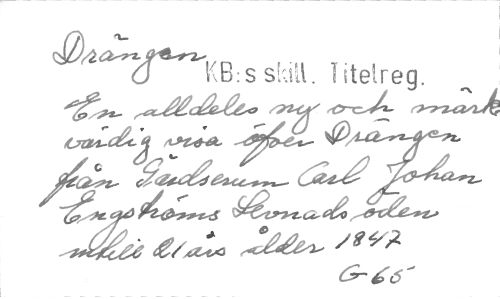 Drängen
KB:s skill. Titelreg.
En alldeles ny och märk
värdig visa öfver Drängen
från Gärdserum Carl Johan
Engströms Levnads öden
intill 21 års ålder 1847
G 65